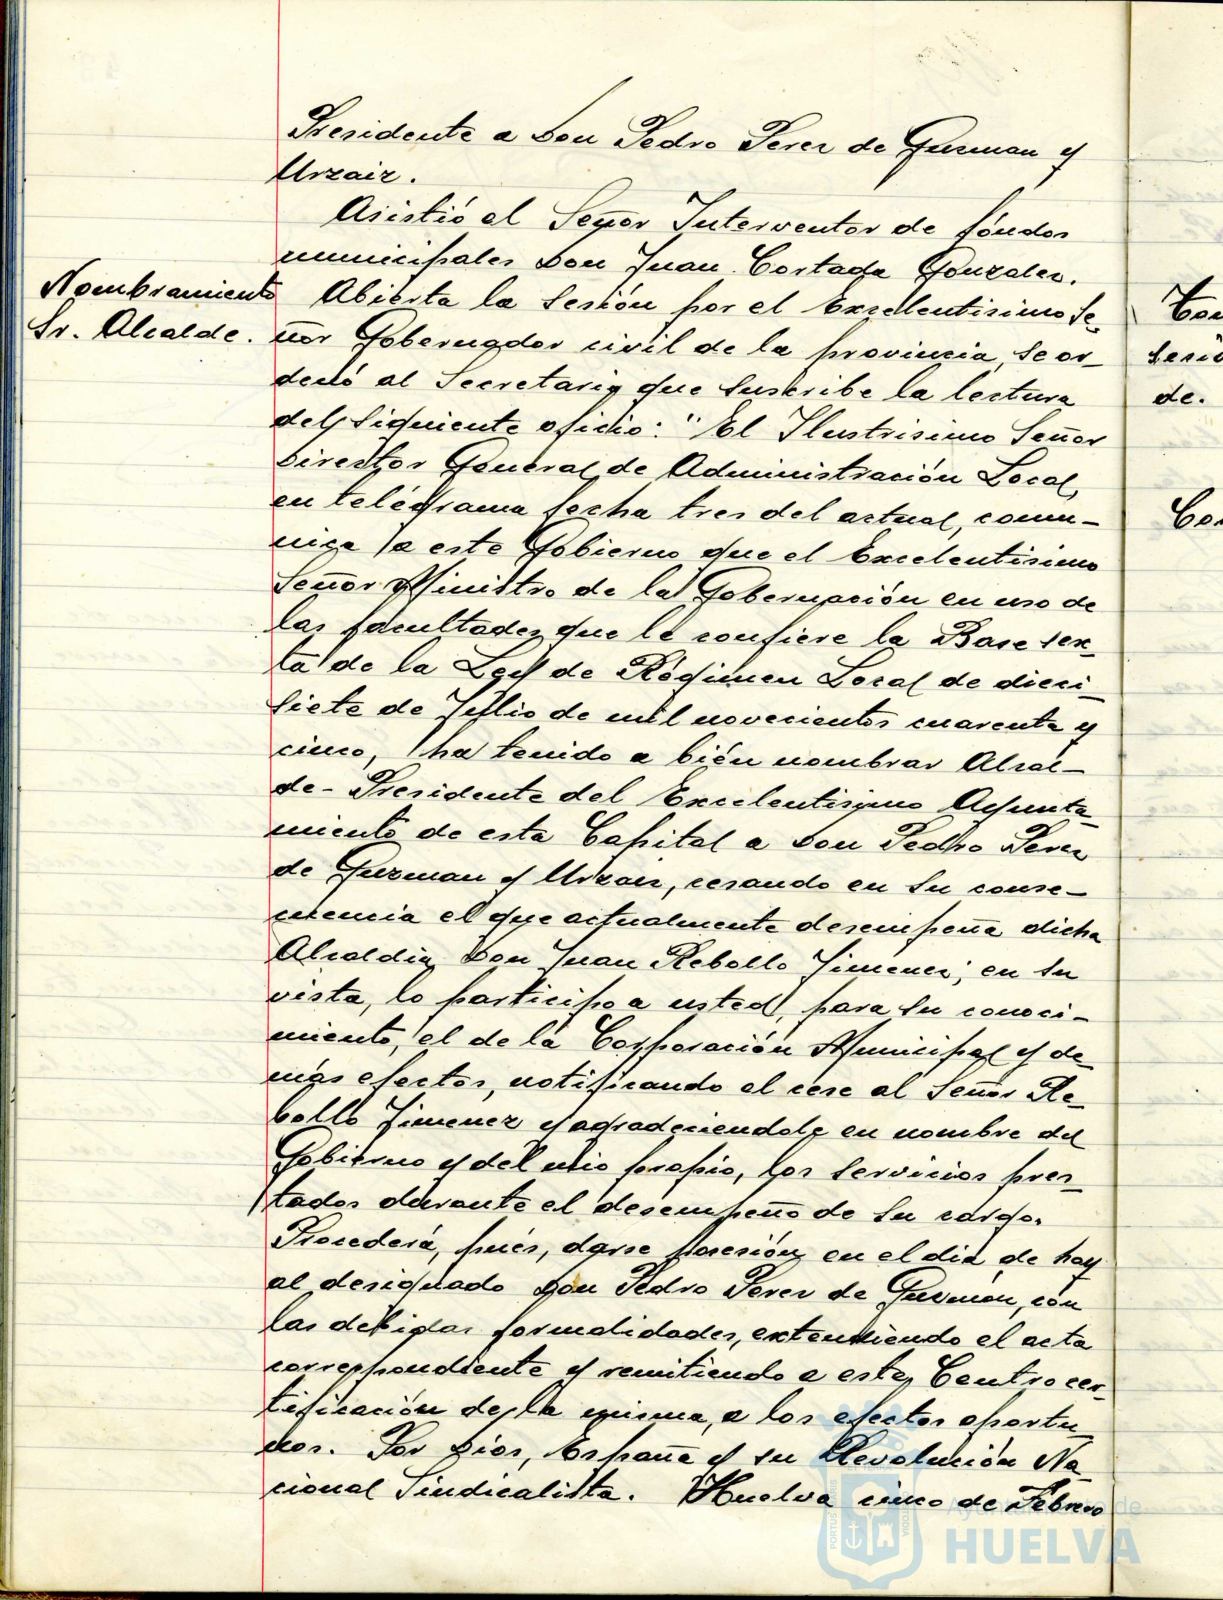 Presidente a Don Pedro Perez de Guzman y
Urzaiz.
Asistió el Señor Interventor de fondos
municipales Don Juan Cortada Gonzalez.
Nombramiento
Sr. Alcalde.
Abierta la sesión por el Excelentisimo Se-
ñor Gobernador civil de la provincia, se or-
denó al Secretario que suscribe la lectura
del siguiente oficio: "El Ilustrisimo Señor
Director General de Administración Local,
en telégrama fecha tres del actual, comu-
nica a este Gobierno que el Excelentisimo
Señor Ministro de la Gobernación en uso de
las facultades que le confiere la Base sex-
ta de la Ley de Régimen Local de dieci-
siete de Julio de mil novecientos cuarenta y
cinco, ha tenido a bién nombrar Alcal-
de-Presidente del Excelentisimo Ayunta-
miento de esta Capital a Don Pedro Perez
de Guzman y Urzaiz, cesando en su conse-
cuencia el que actualmente desempeña dicha
Alcaldia Don Juan Rebollo Jimenez; en su
vista, lo participo a usted, para su conoci-
miento, el de la Corporación Municipal y de-
más efectos, notificando el cese al Señor Re-
bollo Jimenez y agradeciendole en nombre del
Gobierno y del mio propio, los servicios pres-
tados durante el desempeño de su cargo.
Procederá, pués, darse posesión en el dia de hoy
al designado Don Pedro Perez de Guzmán, con
las debidas formalidades, extendiendo el acta
correspondiente y remitiendo a este Centro cer-
tificación de la misma, a los efectos oportu-
nos. Por Dios, España y su Revolución Na-
cional Sindicalista. Huelva cinco de Febrero
Ayuntamiento de
HUELVA